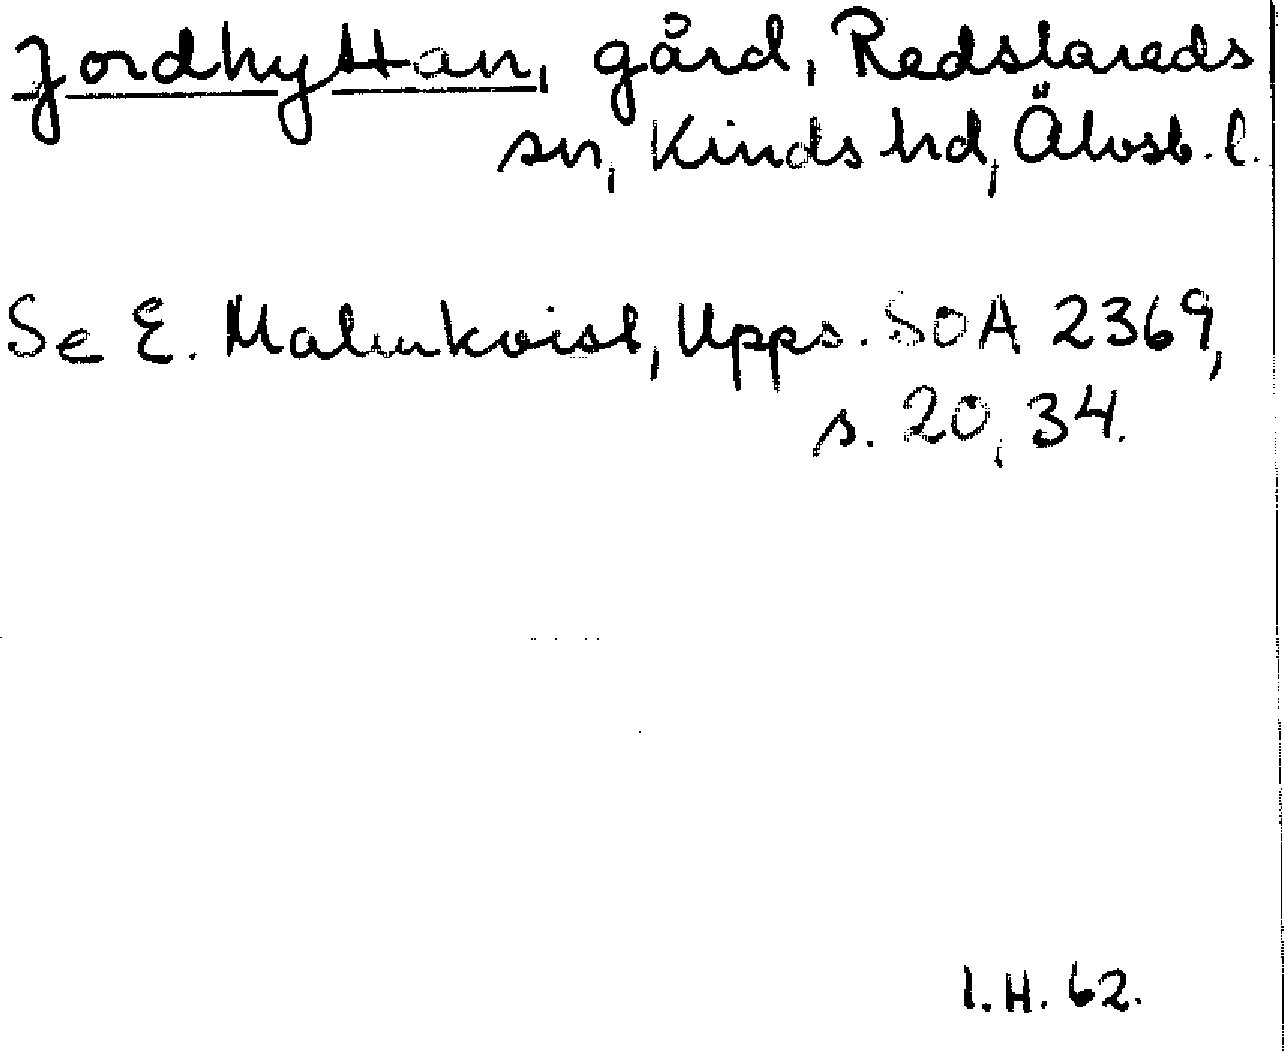 Jordhyttan, gård, Redslareds
sn, Kinds hd, Älvsb. l.
Se E. Malmkvist, Upps. SOA 2369,
s. 20, 34.
I.H. 62.